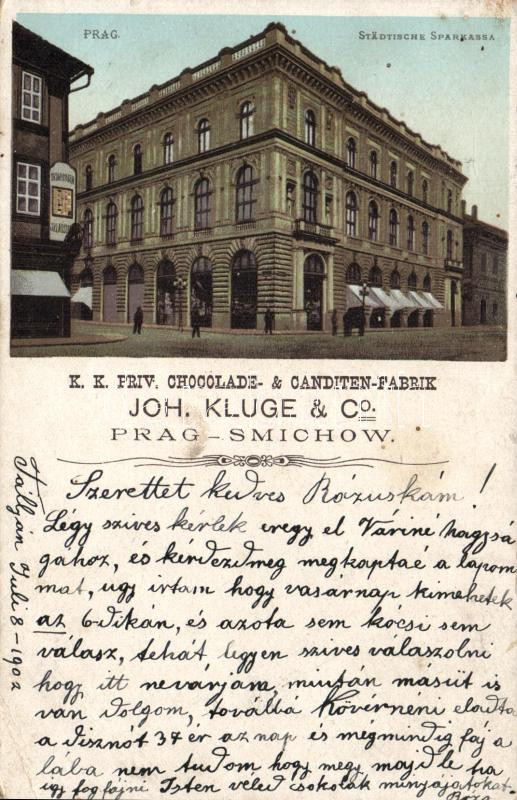 PRAG.
STÄDTISCHE SPARKASSA
K. K. PRIV. CHOCOLADE- & CANDITEN-FABRIK
JOH. KLUGE & Co.
PRAG-SMICHOW.
Szerettet kedves Rózuskám!
Légy szives kérlek eregy el Váriné hagpsá
gához, és kérdezd meg megkaptaé a lapom
mat, ugy irtam hogy vasárnap kimehetek
az 6-dikán, és azota sem kócsi sem
válasz, tehát legyen szives válaszolni
hogy itt nevárjam, miután másüt is
van dolgom, toválbá Kövérnéni eladta
a disznót 34 er az nap és mégmindig fáj a
laba nem tudom hogy megy majdle ha
igy fog fájni Isten véled csokolák minyájatokat
Róza
Tállyán Juli 8-1902